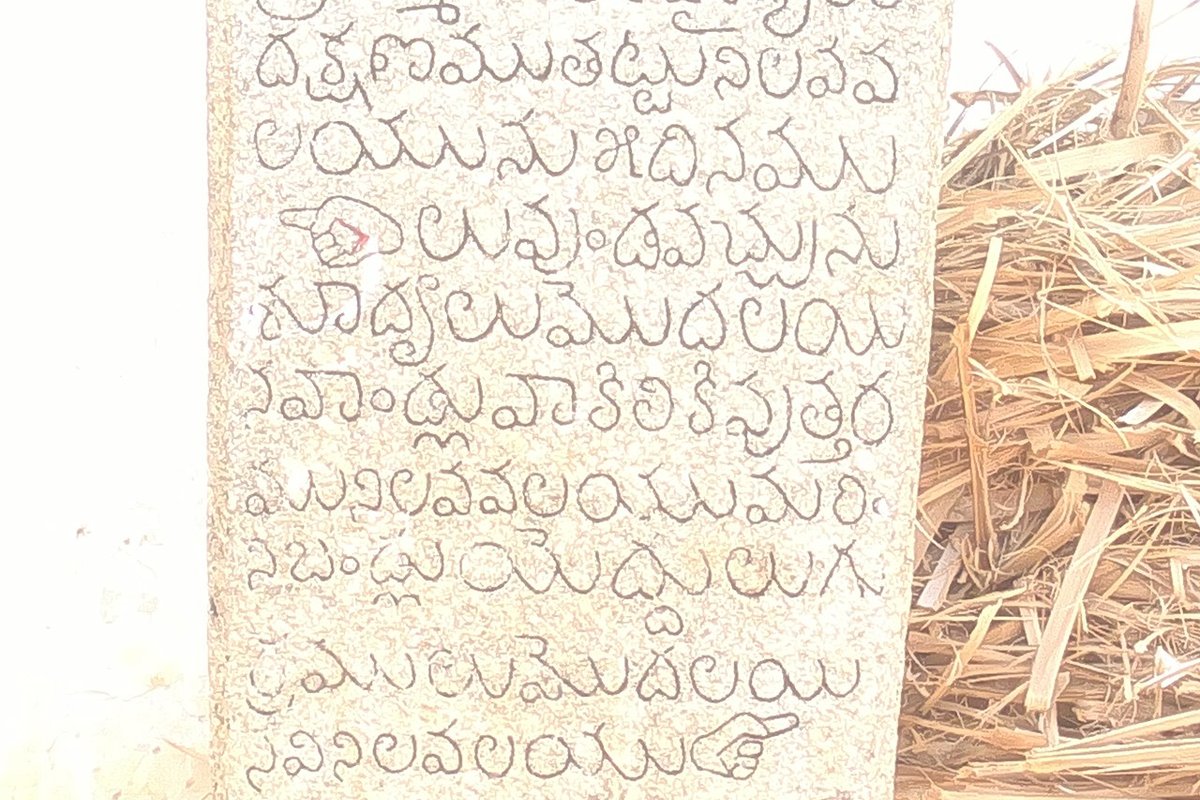 దక్షణముతట్టునిలవవ
లయును ౫దినము
లువుండవచ్చును
సూద్రులుమొదలయి
నవాండ్లువాకిలికివుత్తర
మునిలవవలయుమరిం
నిబండ్లుయెద్దులుగు
ర్రములుమొదలయి
నవినిలవలయు